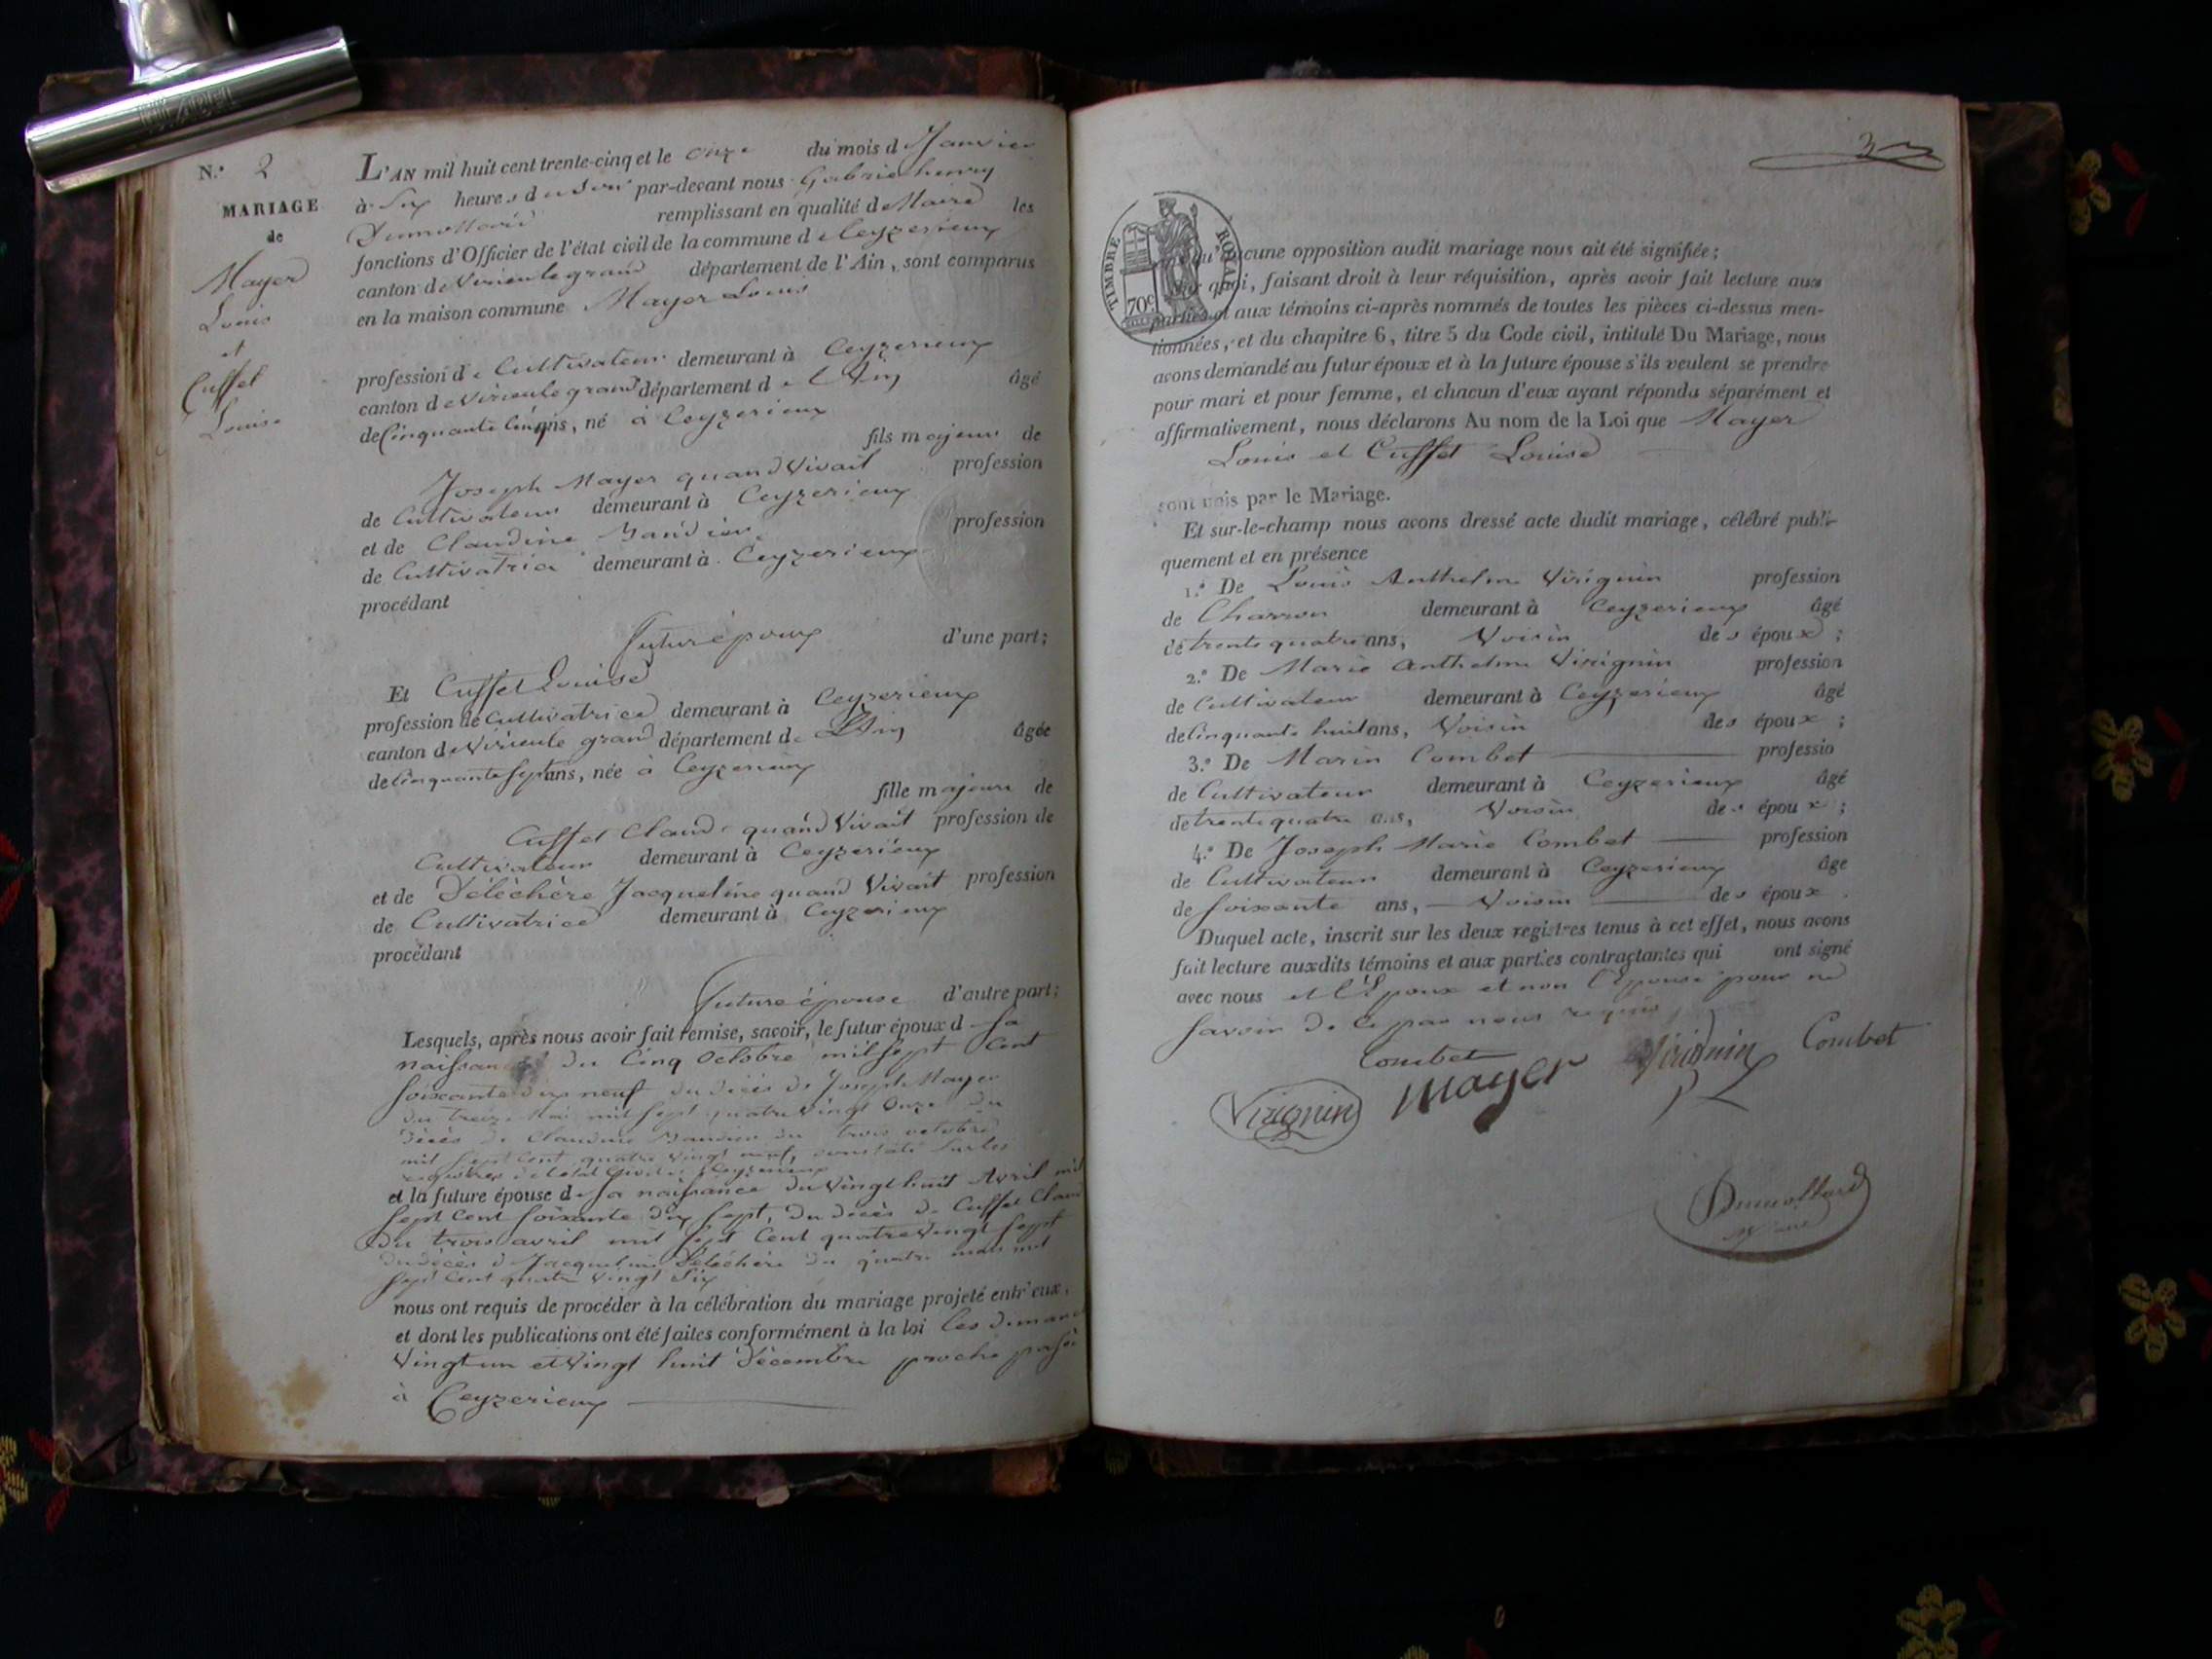 N.º 2
MARIAGE
de
Mayer
Louis
et
Cuffet
Louise
L'AN mil huit cent trente-cinq et le onze du mois d Janvier
à Six heures du Soir par-devant nous Gabriel henry
Dumollard remplissant en qualité de Maire les
fonctions d'Officier de l'état civil de la commune de Ceyzerieux
canton de Virieu le grand département de l'Ain, sont comparus
en la maison commune Mayer Louis
profession de Cultivateur demeurant à Ceyzerieux
canton de Virieu le grand département de l'Ain âgé
de Cinquante Cinq ans, né à Ceyzerieux
fils majeur de
Joseph Mayer quand Vivait profession
de Cultivateur demeurant à Ceyzerieux
et de Claudine profession
de Cultivatrice demeurant à Ceyzerieux
procédant
futur époux d'une part;
Et Cuffet Louise
profession de Cultivatrice demeurant à Ceyzerieux
canton de Virieu le grand département de l'Ain âgée
de Cinquante Sept ans, née à Ceyzerieux
fille majeure de
Cuffet Claude quand Vivait profession de
Cultivateur demeurant à Ceyzerieux
et de Délèchère Jacqueline quand Vivait profession
de Cultivatrice demeurant à Ceyzerieux
procédant
future épouse d'autre part;
Lesquels, après nous avoir fait remise, savoir, le futur époux d Sa
naissance du Cinq Octobre mil Sept Cent
Soixante dix neuf du décès de Joseph Mayer
du treize Mai mil Sept quatre Vingt Onze du
décès de Claudine du trois octobre
mil Sept Cent quatre Vingt neuf, constaté Sur les
registres de l'état Civil de Ceyzerieux
et la future épouse de Sa naissance du Vingt huit Avril mil
Sept Cent Soixante dix Sept, du décès de Cuffet Claude
du trois avril mil Sept Cent quatre Vingt Sept
du décès de Jacqueline Délèchère du quatre mars mil
Sept Cent quatre Vingt Six
nous ont requis de procéder à la célébration du mariage projeté entr'eux,
et dont les publications ont été faites conformément à la loi les dimanc
Vingt un et Vingt huit Décembre proche passé
à Ceyzerieux
TIMBRE ROYAL
70c
qu'aucune opposition audit mariage nous ait été signifiée;
quoi, faisant droit à leur réquisition, après avoir fait lecture aux
parties et aux témoins ci-après nommés de toutes les pièces ci-dessus men-
tionnées, et du chapitre 6, titre 5 du Code civil, intitulé Du Mariage, nous
avons demandé au futur époux et à la future épouse s'ils veulent se prendre
pour mari et pour femme, et chacun d'eux ayant répondu séparément et
affirmativement, nous déclarons Au nom de la Loi que Mayer
Louis et Cuffet Louise
sont unis par le Mariage.
Et sur-le-champ nous avons dressé acte dudit mariage, célébré publi-
quement et en présence
1.º De Louis Anthelme Virignin profession
de Charron demeurant à Ceyzerieux âgé
de trente quatre ans, Voisin des époux;
2.º De Marie Anthelme Virignin profession
de Cultivateur demeurant à Ceyzerieux âgé
de Cinquante huit ans, Voisin des époux;
3.º De Marin Combet professio
de Cultivateur demeurant à Ceyzerieux âgé
de trente quatre ans, Voisin des époux;
4.º De Joseph Marie Combet profession
de Cultivateur demeurant à Ceyzerieux âgé
de Soixante ans, Voisin des époux.
Duquel acte, inscrit sur les deux registres tenus à cet effet, nous avons
fait lecture auxdits témoins et aux parties contractantes qui ont signé
avec nous et l'Epoux et non l'Epouse pour ne
Savoir de ce par nous requis
Combet Mayer Virignin Combet
Virignin
Dumollard
Maire